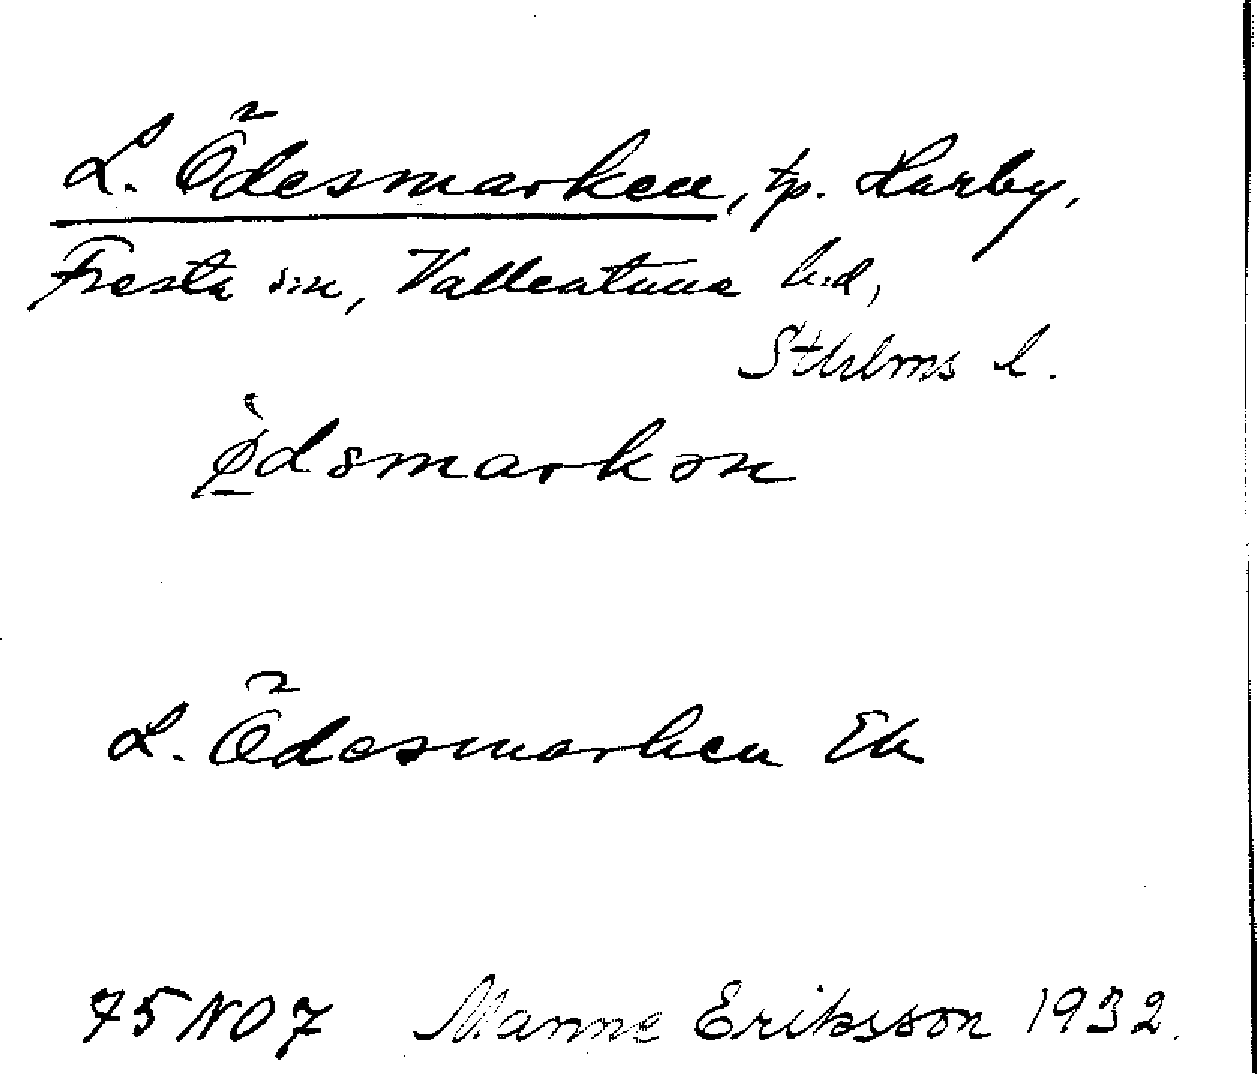 L. Ödesmarken, tp. Harby,
Fresta sn, Vallentuna hd,
Sthlms l.
L. Ödesmarken Ek
75 NO 7 Manne Eriksson 1932.